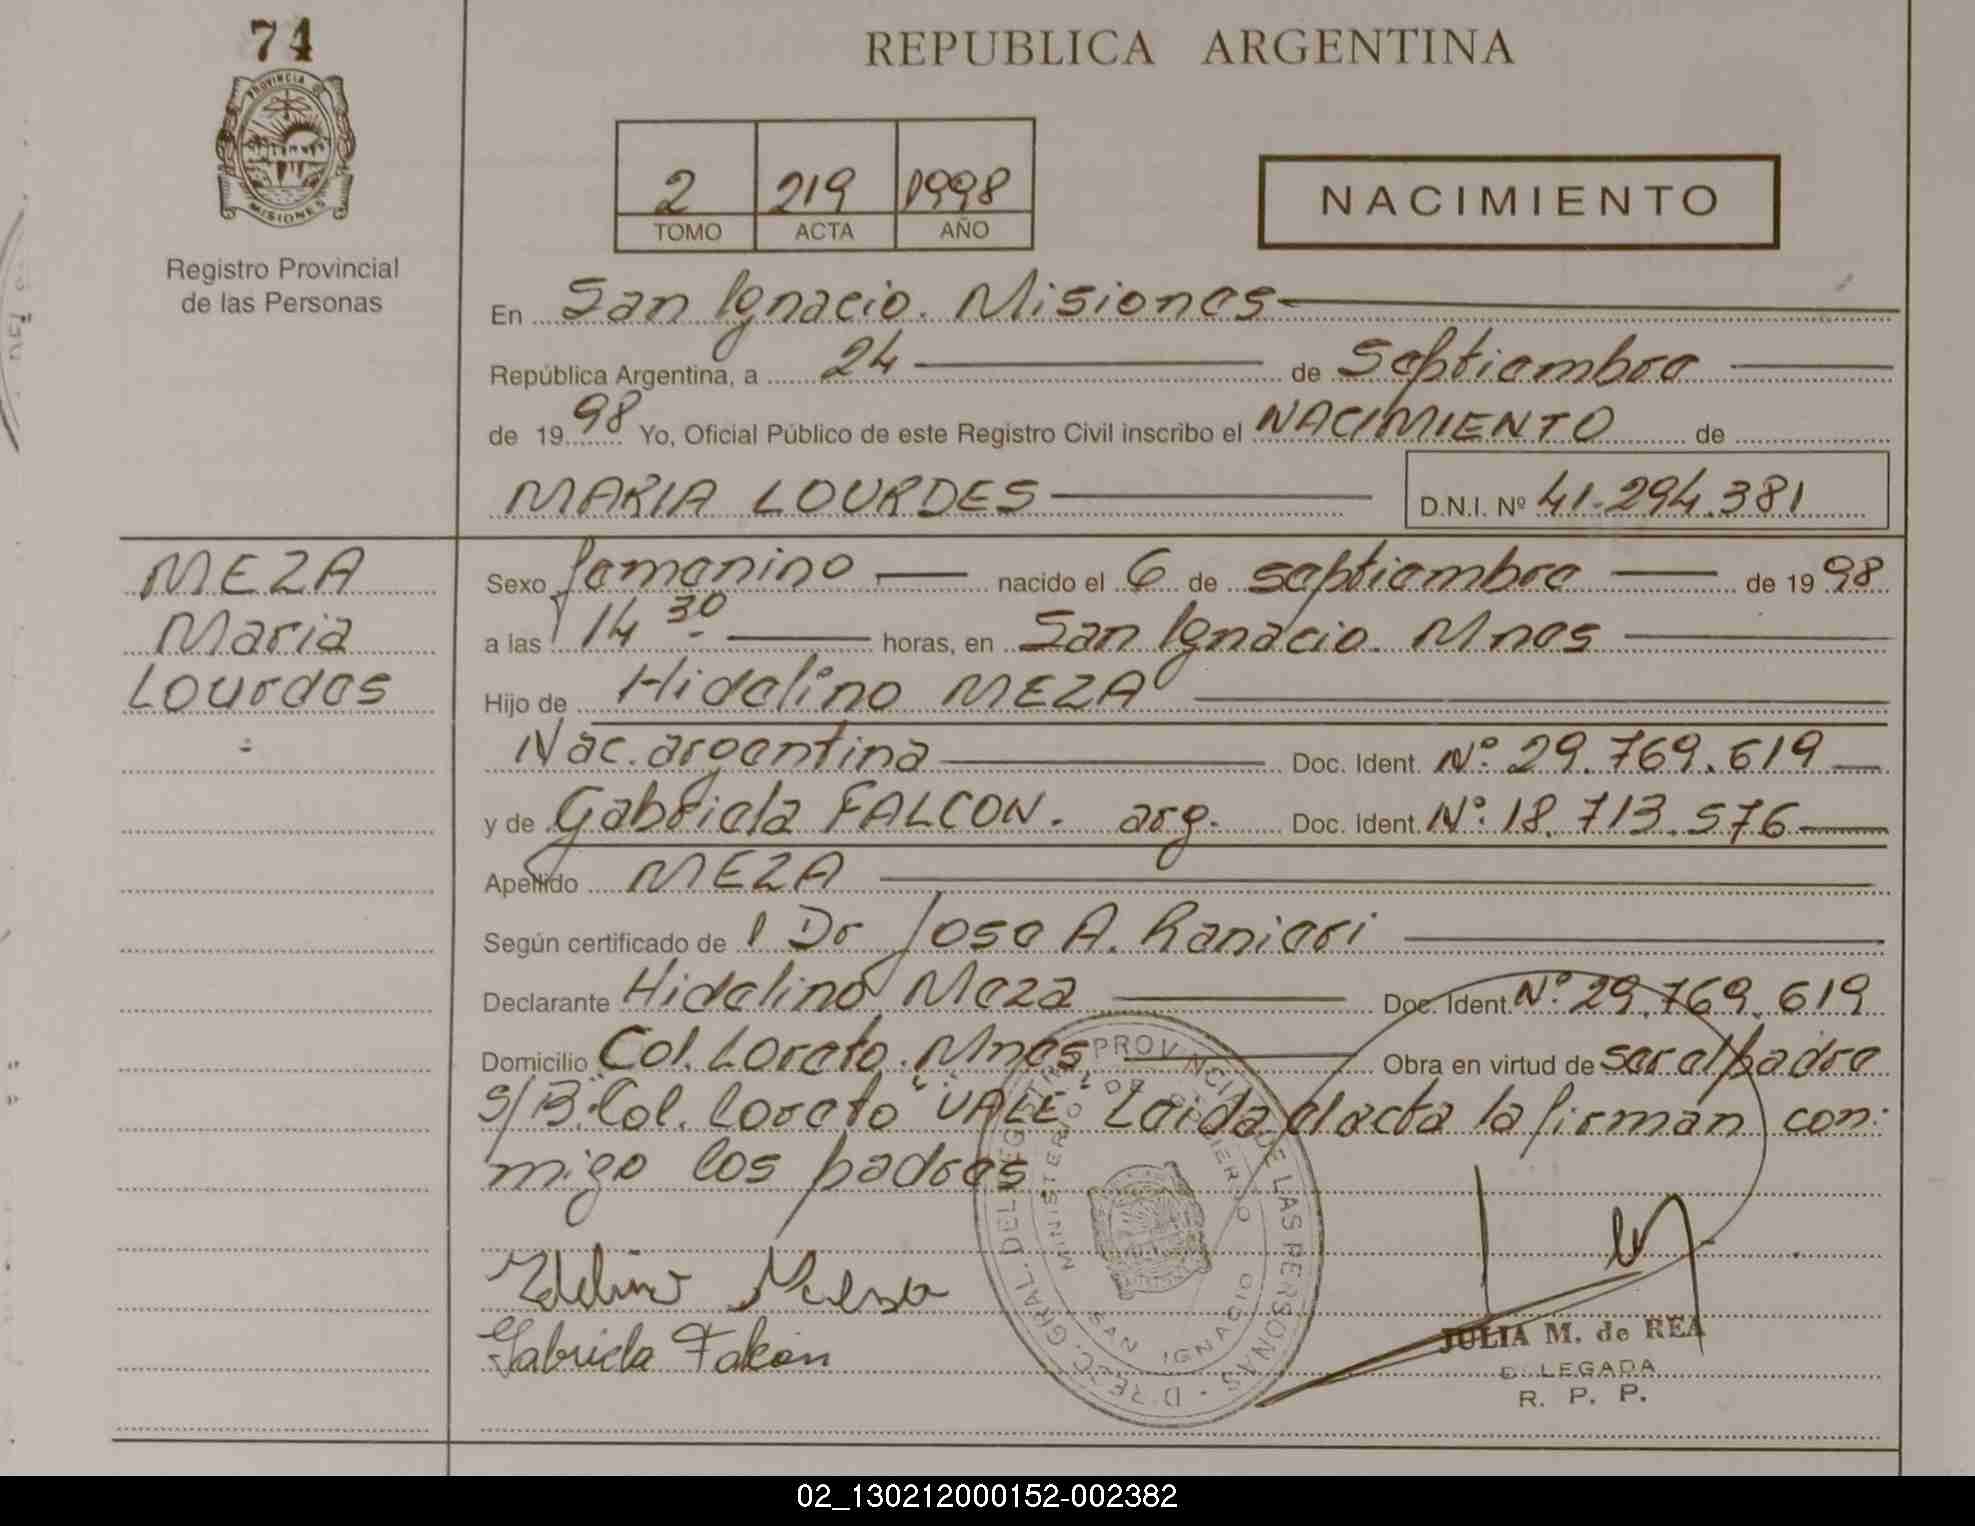 74
REPUBLICA ARGENTINA
PROVINCIA DE
MISIONES
Registro Provincial
de las Personas
2 219 1998
TOMO ACTA AÑO
NACIMIENTO
En San Ignacio. Misiones
República Argentina, a 24 de Septiembre
de 1998 Yo, Oficial Público de este Registro Civil inscribo el NACIMIENTO de
MARIA LOURDES D.N.I. Nº 41.294.381
MEZA
Maria
Lourdes
Sexo femenino nacido el 6 de septiembre de 1998
a las 14 30 horas, en San Ignacio. Mnes
Hijo de Hidelino MEZA
Nac. argentina Doc. Ident. Nº 29.769.619
y de Gabriela FALCON. arg. Doc. Ident. Nº 18.713.576
Apellido MEZA
Según certificado de l Dr Jose A. Ranieri
Declarante Hidelino Meza Doc. Ident. Nº 29.769.619
Domicilio Col. Loreto. Mnes Obra en virtud de ser el padre
S/B. Col. Loreto "VALE" Leida el acta la firman con-
migo los padres
Meza
Gabriela Falcon
DIREC. GRAL. DEL REGISTRO PROVINCIAL DE LAS PERSONAS
MINISTERIO DE GOBIERNO
SAN IGNACIO
JULIA M. de REA
DELEGADA
R. P. P.
02_130212000152-002382